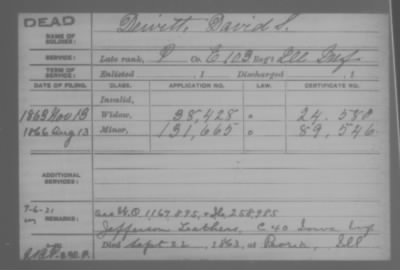 DEAD
NAME OF SOLDIER: Dewitt, David S.
SERVICE: Late rank, P Co. E 103 Reg't Ill Inf
TERM OF SERVICE: Enlisted , 1 Discharged , 1
DATE OF FILING. CLASS. APPLICATION NO. LAW. CERTIFICATE NO.
Invalid,
1863 Nov 13 Widow, 38,428 24.580
1866 Aug 13 Minor, 131,665 89,546
ADDITIONAL SERVICES:
7-6-21
REMARKS: W.O. 1,167,895, 258,985
Jefferson C 40 Iowa Inf
Died Sept 22, 1863, at Peoria, Ill